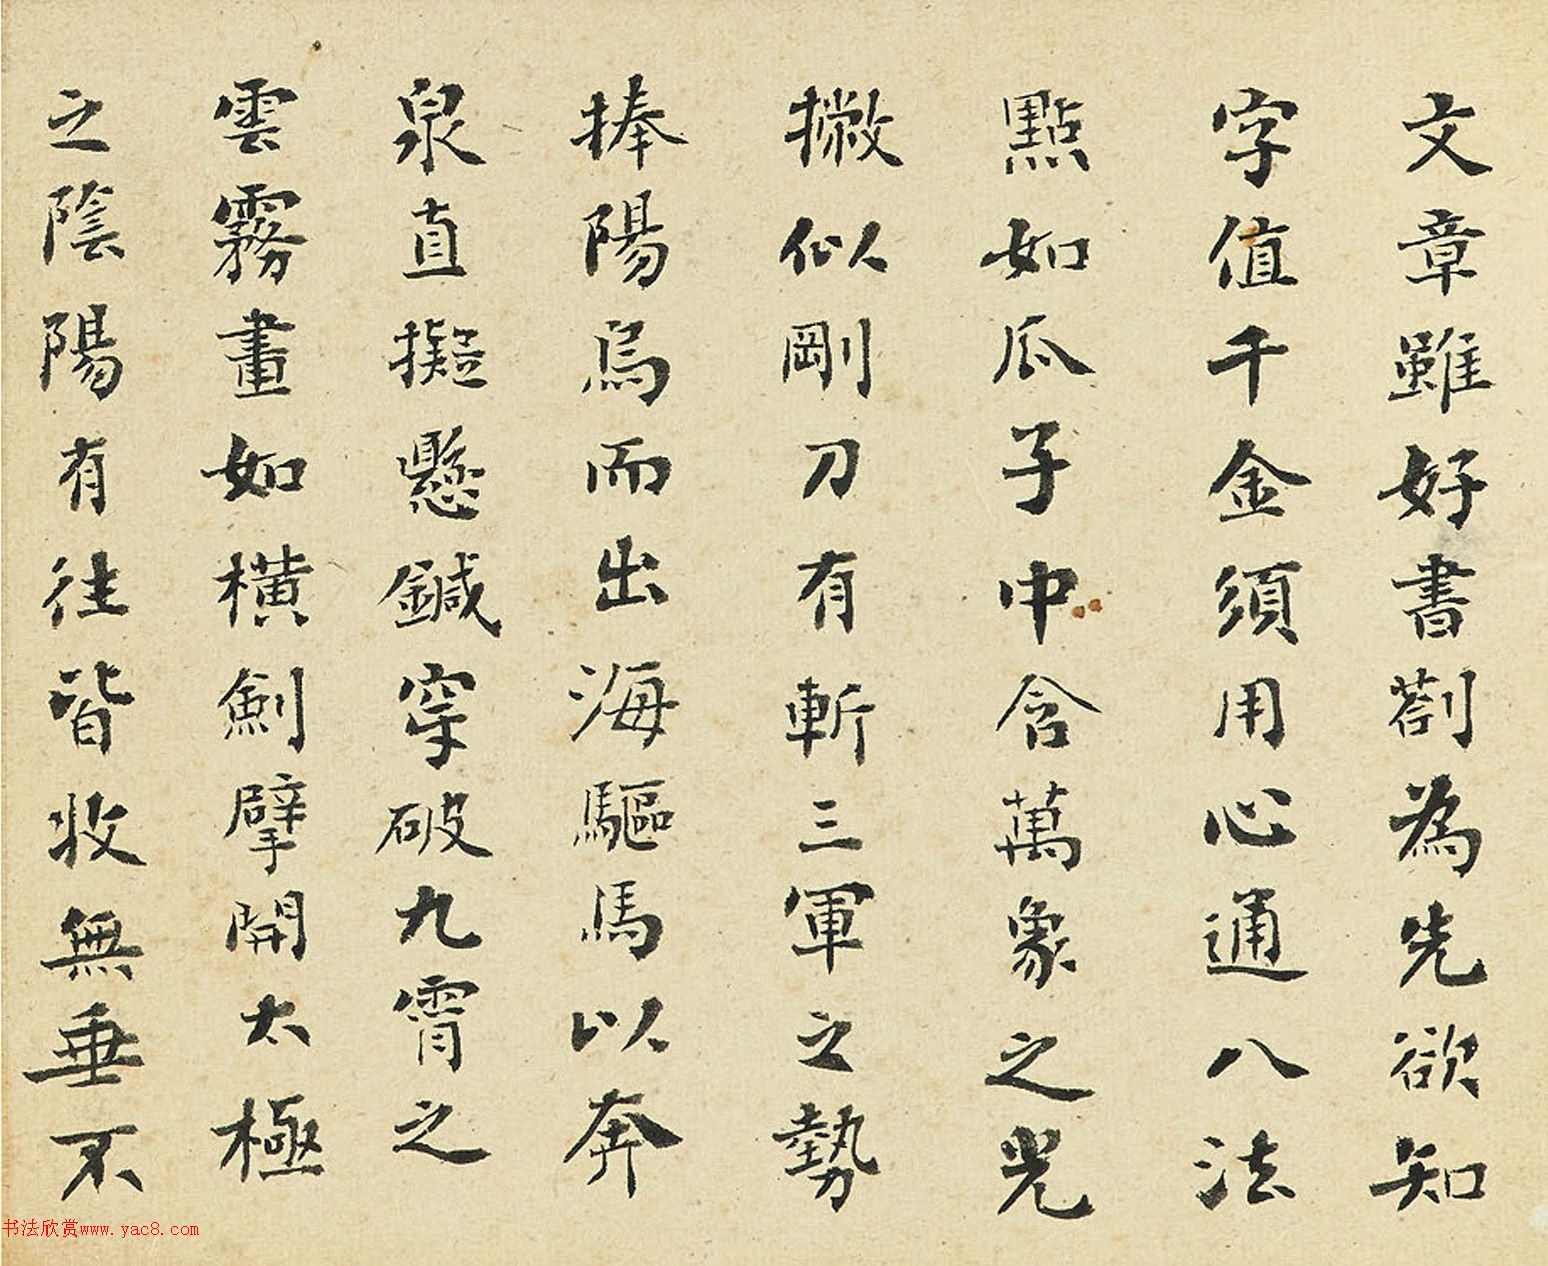 文章雖好書劄為先欲知
字值千金須用心通八法
點如瓜子中含萬象之光
撇似剛刀有斬三軍之勢
捧陽烏而出海驅馬以奔
泉直擬懸鍼穿破九霄之
雲霧畫如橫劍擘開太極
之陰陽有往皆收無垂不
书法欣赏www.yac8.com